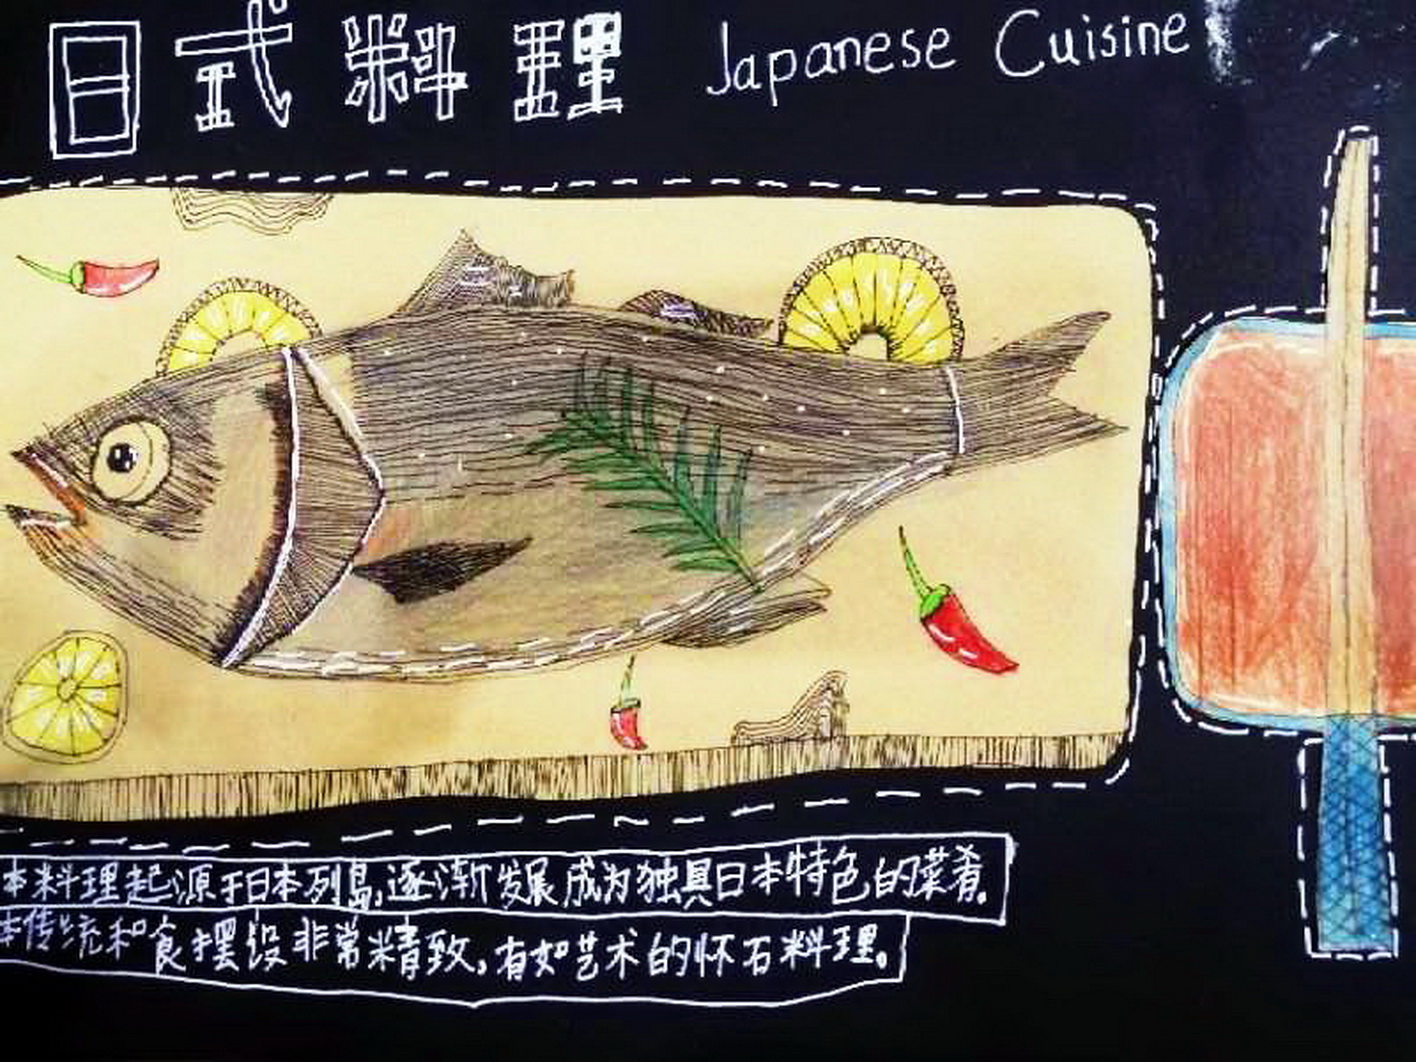 日式料理 Japanese Cuisine
本料理起源于日本列島,逐渐发展成为独具日本特色的菜肴。
本传统和食摆设非常精致,有如艺术的怀石料理。